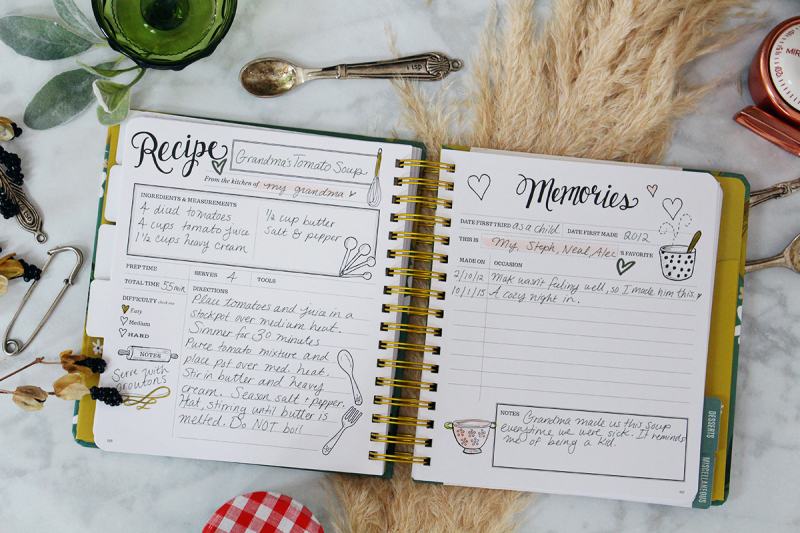 1 TSP
Recipe
Grandma's Tomato Soup
From the kitchen of my grandma
INGREDIENTS & MEASUREMENTS
4 diced tomatoes
4 cups tomato juice
1 1/2 cups heavy cream
1/2 cup butter
Salt & pepper
PREP TIME
SERVES 4
TOOLS
TOTAL TIME 55 min
DIFFICULTY check one
Easy
Medium
HARD
NOTES
Serve with
croutons
DIRECTIONS
Place tomatoes and juice in a
stockpot over medium heat.
Simmer for 30 minutes
Puree tomato mixture and
place pot over med. heat.
Stir in butter and heavy
cream. Season salt & pepper.
Heat, stirring until butter is
melted. Do NOT boil
Memories
DATE FIRST TRIED as a child DATE FIRST MADE 2012
THIS IS My, Steph, Neal, Alec 'S FAVORITE
MADE ON OCCASION
2/10/12 Mak wasn't feeling well, so I made him this.
10/1/15 A cozy night in.
NOTES
Grandma made us this soup
everytime we were sick. It reminds
me of being a kid.
DESSERTS
MISCELLANEOUS